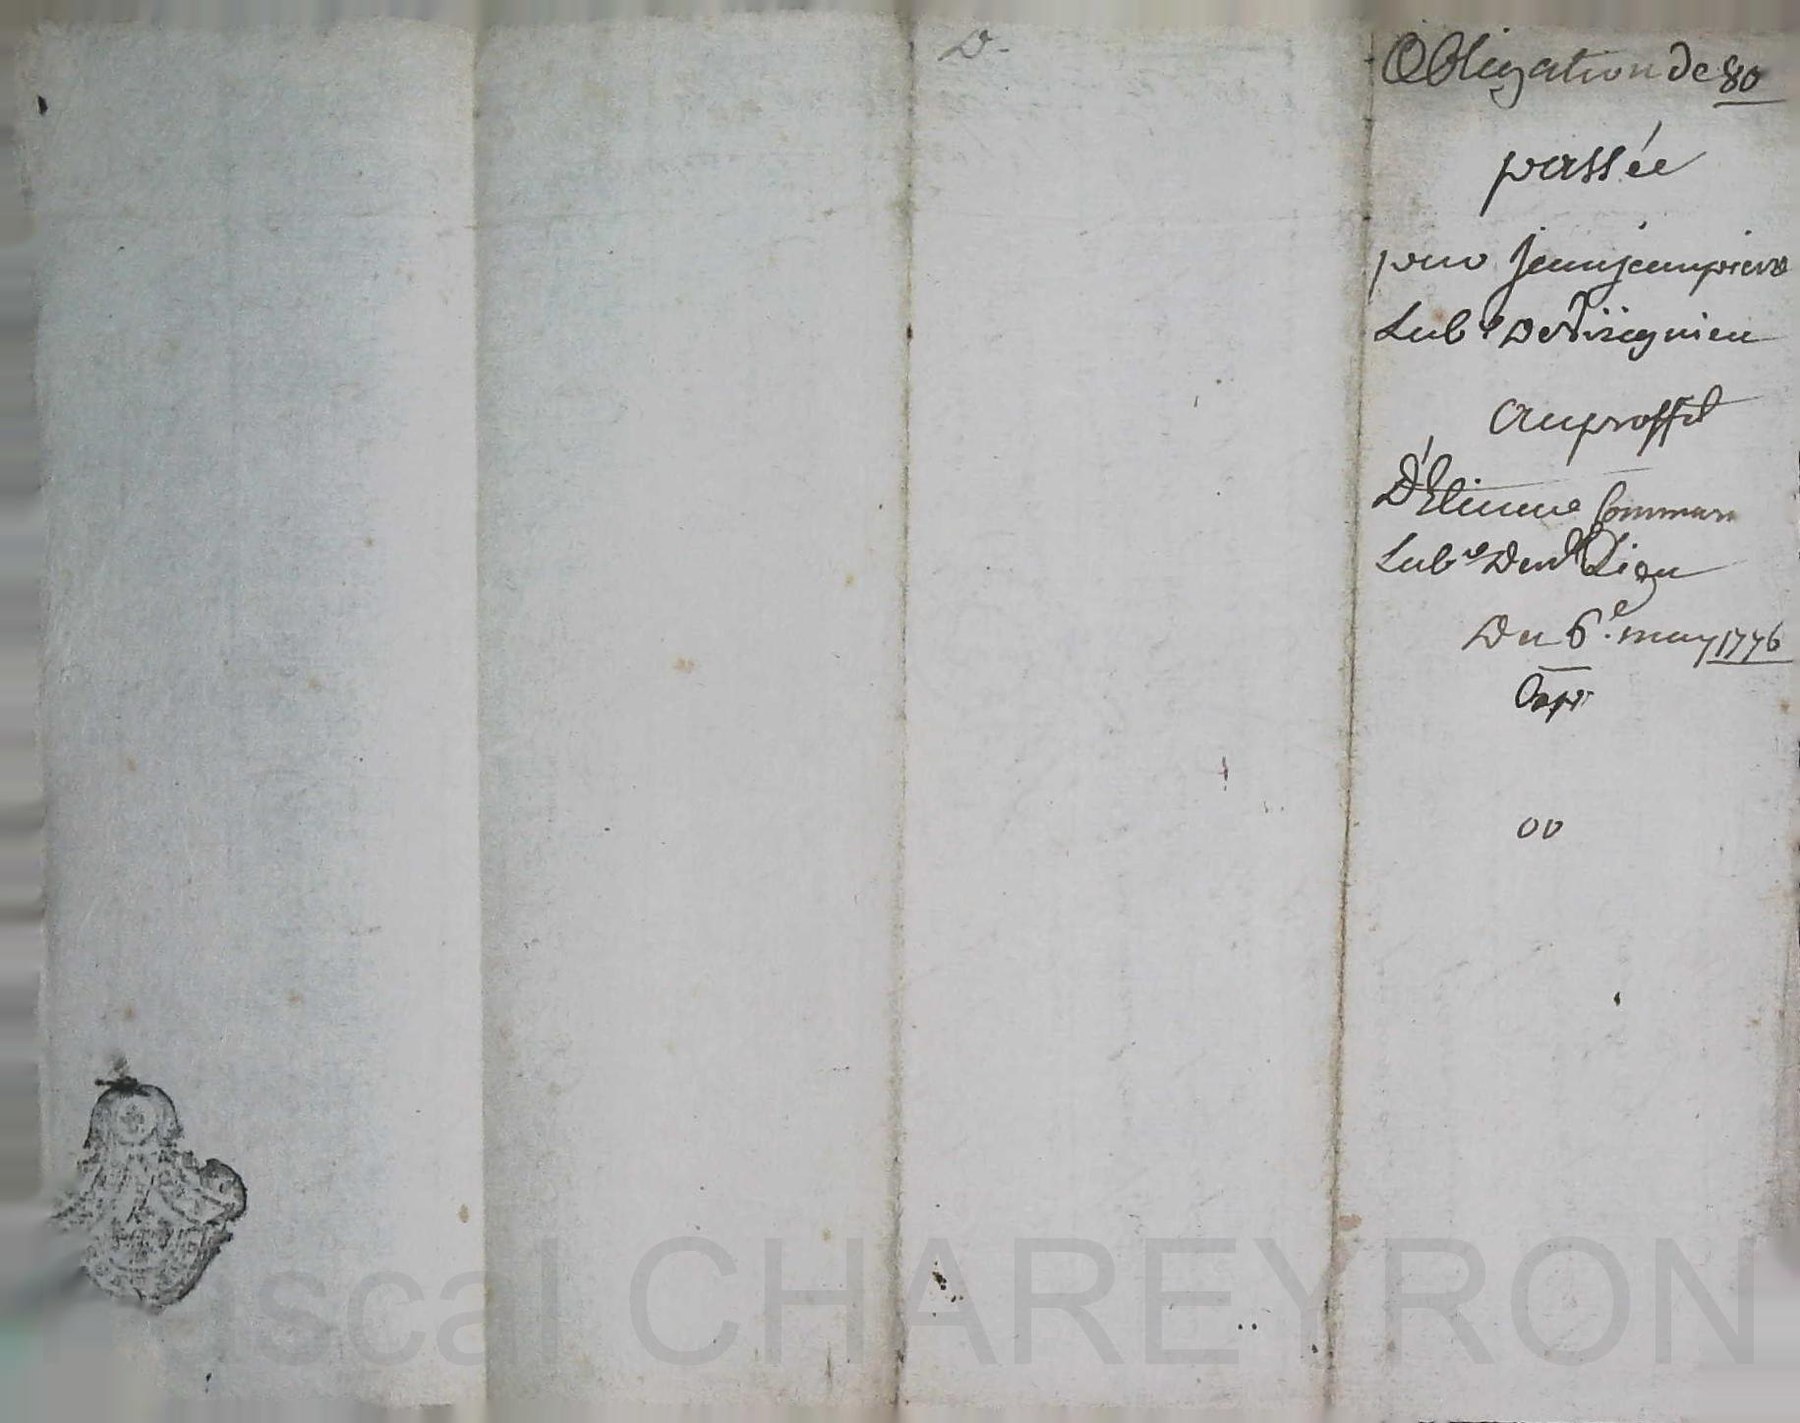 D.
Obligation de 80
passée
par Jean jeanpierre
Lab.r De Virignieu
au proffit
D'Etienne Comman
Lab.r De
Du 6.e may 1776
Exp.
00
Pascal CHAREYRON